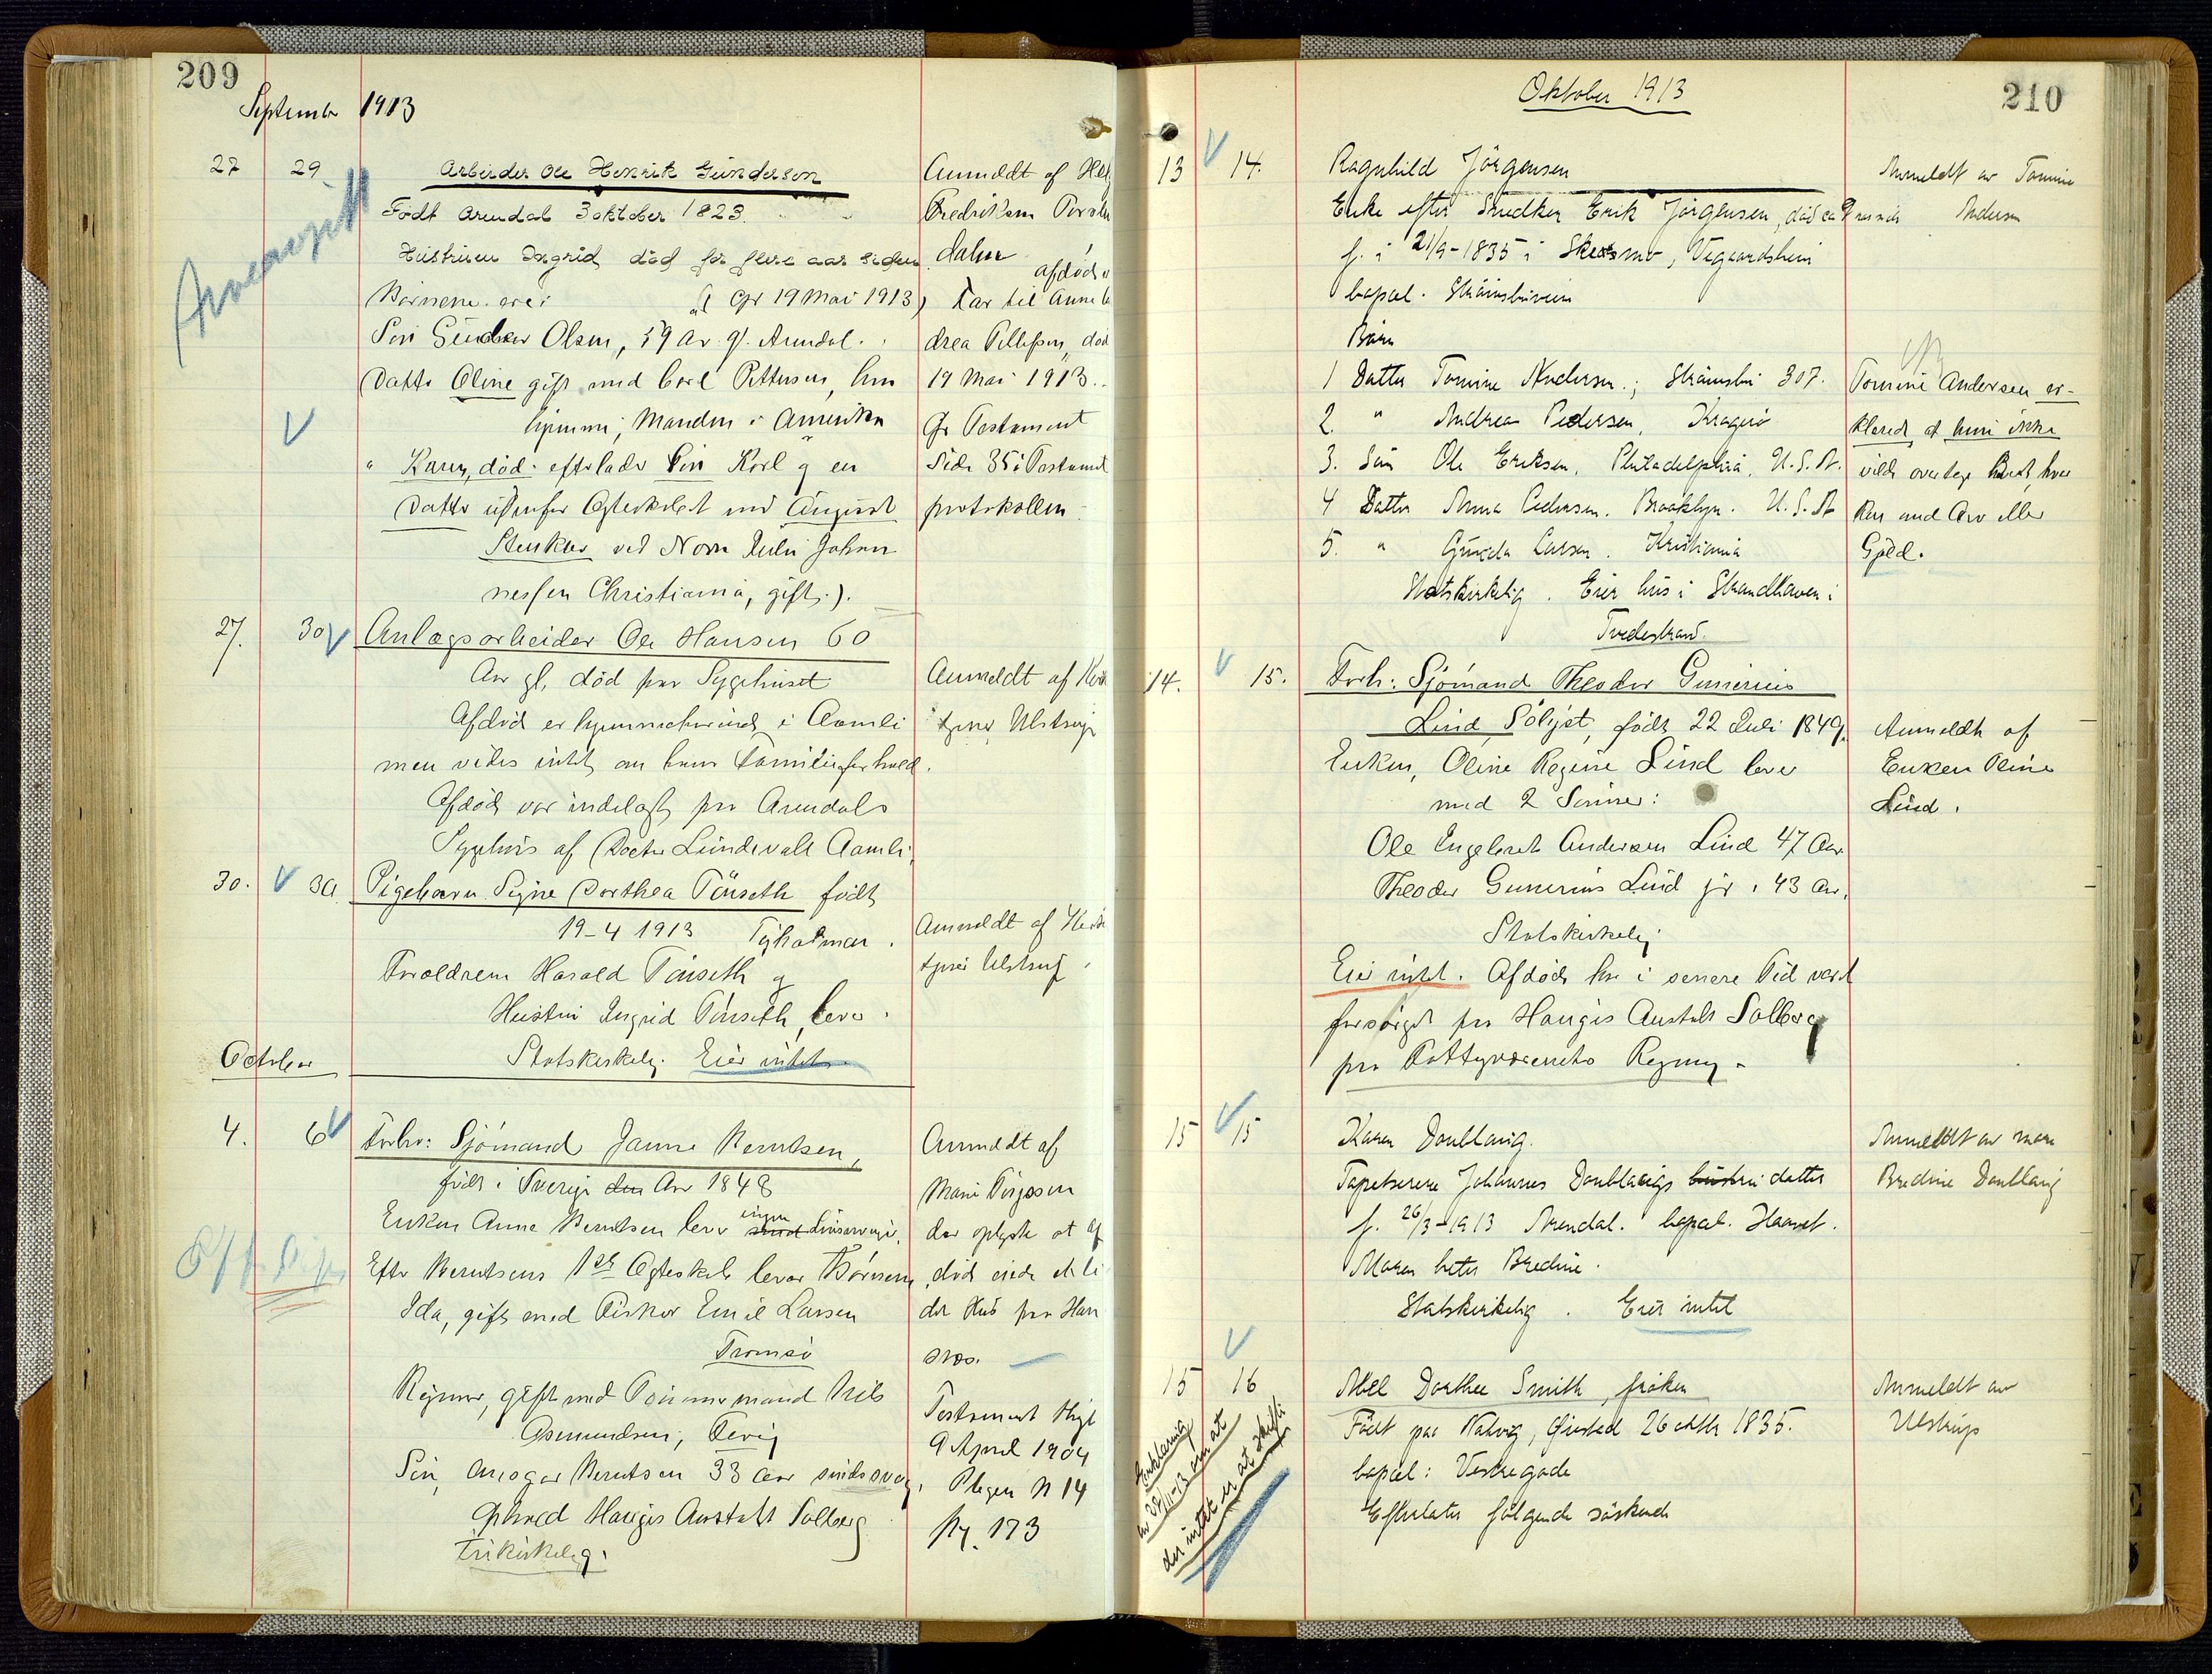 209
September 1913
27 29 Arbeider Ole Henrik Gundersen
Født Arendal 3 oktober 1823.
Hustruen Ingrid død for flere aar siden
Børnene ere:
Søn Gunder Olsen, 59 Ar gl. Arendal.
Datter Oline gift med Carl Pettersen, hun
hjemme, Manden i Amerika
" Karen, død. efterlader Søn Karl og en
Datter udenfor Ægteskabet med August
Stenkler ved Navn Julie Johan
nessen Christiania, gift.).
Anmeldt af
Fredriksen
dalen
afdøde
har til Anne
drea Pellefsen, død
19 Mai 1913.
Gr Testament
Side 35 i Testament
protokollen
27. 30 Anlægsarbeider Ole Hansen 60
Aar gl, død paa Sygehuset
Afdød er hjemmehørende i Aamli
men vides intet om hans Familieforhold.
Afdød var indelagt paa Arendals
Sygehus af Doctor Lundevall Aamli.
Anmeldt af
Ulstrup
30. 30. Pigebarn Signe Dorthea Tønseth født
19-4 1913 Tyholmen.
Foreldrene Harald Tønseth og
Hustru Ingrid Tønseth, lever.
Statskirkelig. Eier intet.
Anmeldt af
Ulstrup.
October
4. 6 Forhv: Sjømand Janne Berntsen,
født i Sverige den Aar 1848
Enken Anne Berntsen lever ingen Livsarvinger.
Efter Berntsens 1ste Ægteskab lever Børnene
Ida, gift med Fisker Emil Larsen
Tromsø
Regine, gift med Tømmermand Nils
Asmundsen, Fevig
Søn, Ansgar Berntsen 33 Aar sindssvag,
Ophved Haugis Anstalt Solberg
Frikirkelig.
Anmeldt af
Marie Torjesen
der oplyste at af
død eiede et li
det Hus paa Han
snes.
Testament thgl
9 April 1904
Plegen N 14
pg. 173
210
Oktober 1913
13 14. Ragnhild Jørgensen
Enke efter Snedker Erik Jørgensen, død ca 9 mnd
f. i 21/9-1835 i Skeismo, Vegaardsheien
bopæl. Strømsbuveien
Børn
1 Datter Tomine Andersen.; Strømsbu 307.
2. " Andrea Pedersen, Kragerø
3. Søn Ole Eriksen, Philadelphia. U.S.A.
4 Datter Anna Pedersen. Brooklyn. U.S.A
5. " Gunda Larsen. Kristiania
Statskirkelig. Eier hus i Strandhaven i
Tvedestrand.
Anmeldt av Tomine
Andersen
Tomine Andersen er-
klared, at hun ikke
vilde overtage Boet, hver
ken med Arv eller
Gjeld.
14. 15. Forh: Sjømand Theodor Gunerius
Lind, Sölyst, født 22 Juli 1849.
Enken, Oline Regine Lind lever
med 2 Sønner:
Ole Engebret Andersen Lind 47 Aar
Theodor Gunerius Lind jr. 43 Aar.
Statskirkelig
Eier intet. Afdøde har i senere Tid vært
forsørget paa Haugis Anstalt Solberg
paa Fattigvæsenets Regning.
Anmeldt af
Enken Oline
Lind.
15 15 Karen Doublaug.
Tapetserer Johannes Doublaugs hustru datter
f. 26/3-1913 Arendal. bopæl. Haavet.
Moren heter Bredine.
Statskirkelig. Eier intet
Anmeldt av moren
Bredine Doublaug
15 16 Abel Dorthee Smith, frøken
Født paa Natvig, Øiestad 26 oktbr 1835.
bopæl: Vestregade
Efterlater følgende søskende
Anmeldt av
Ulstrup
Erklæring
av 25/11-13 om at
der intet er at skifte